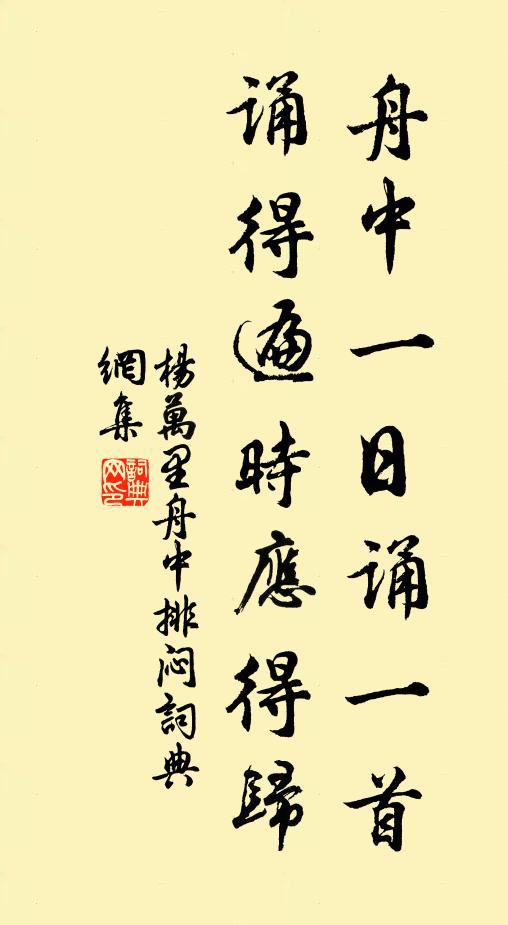 舟中一日誦一首
誦得遍時應得歸
楊萬里舟中排闷詞典
網集
詞典
网印